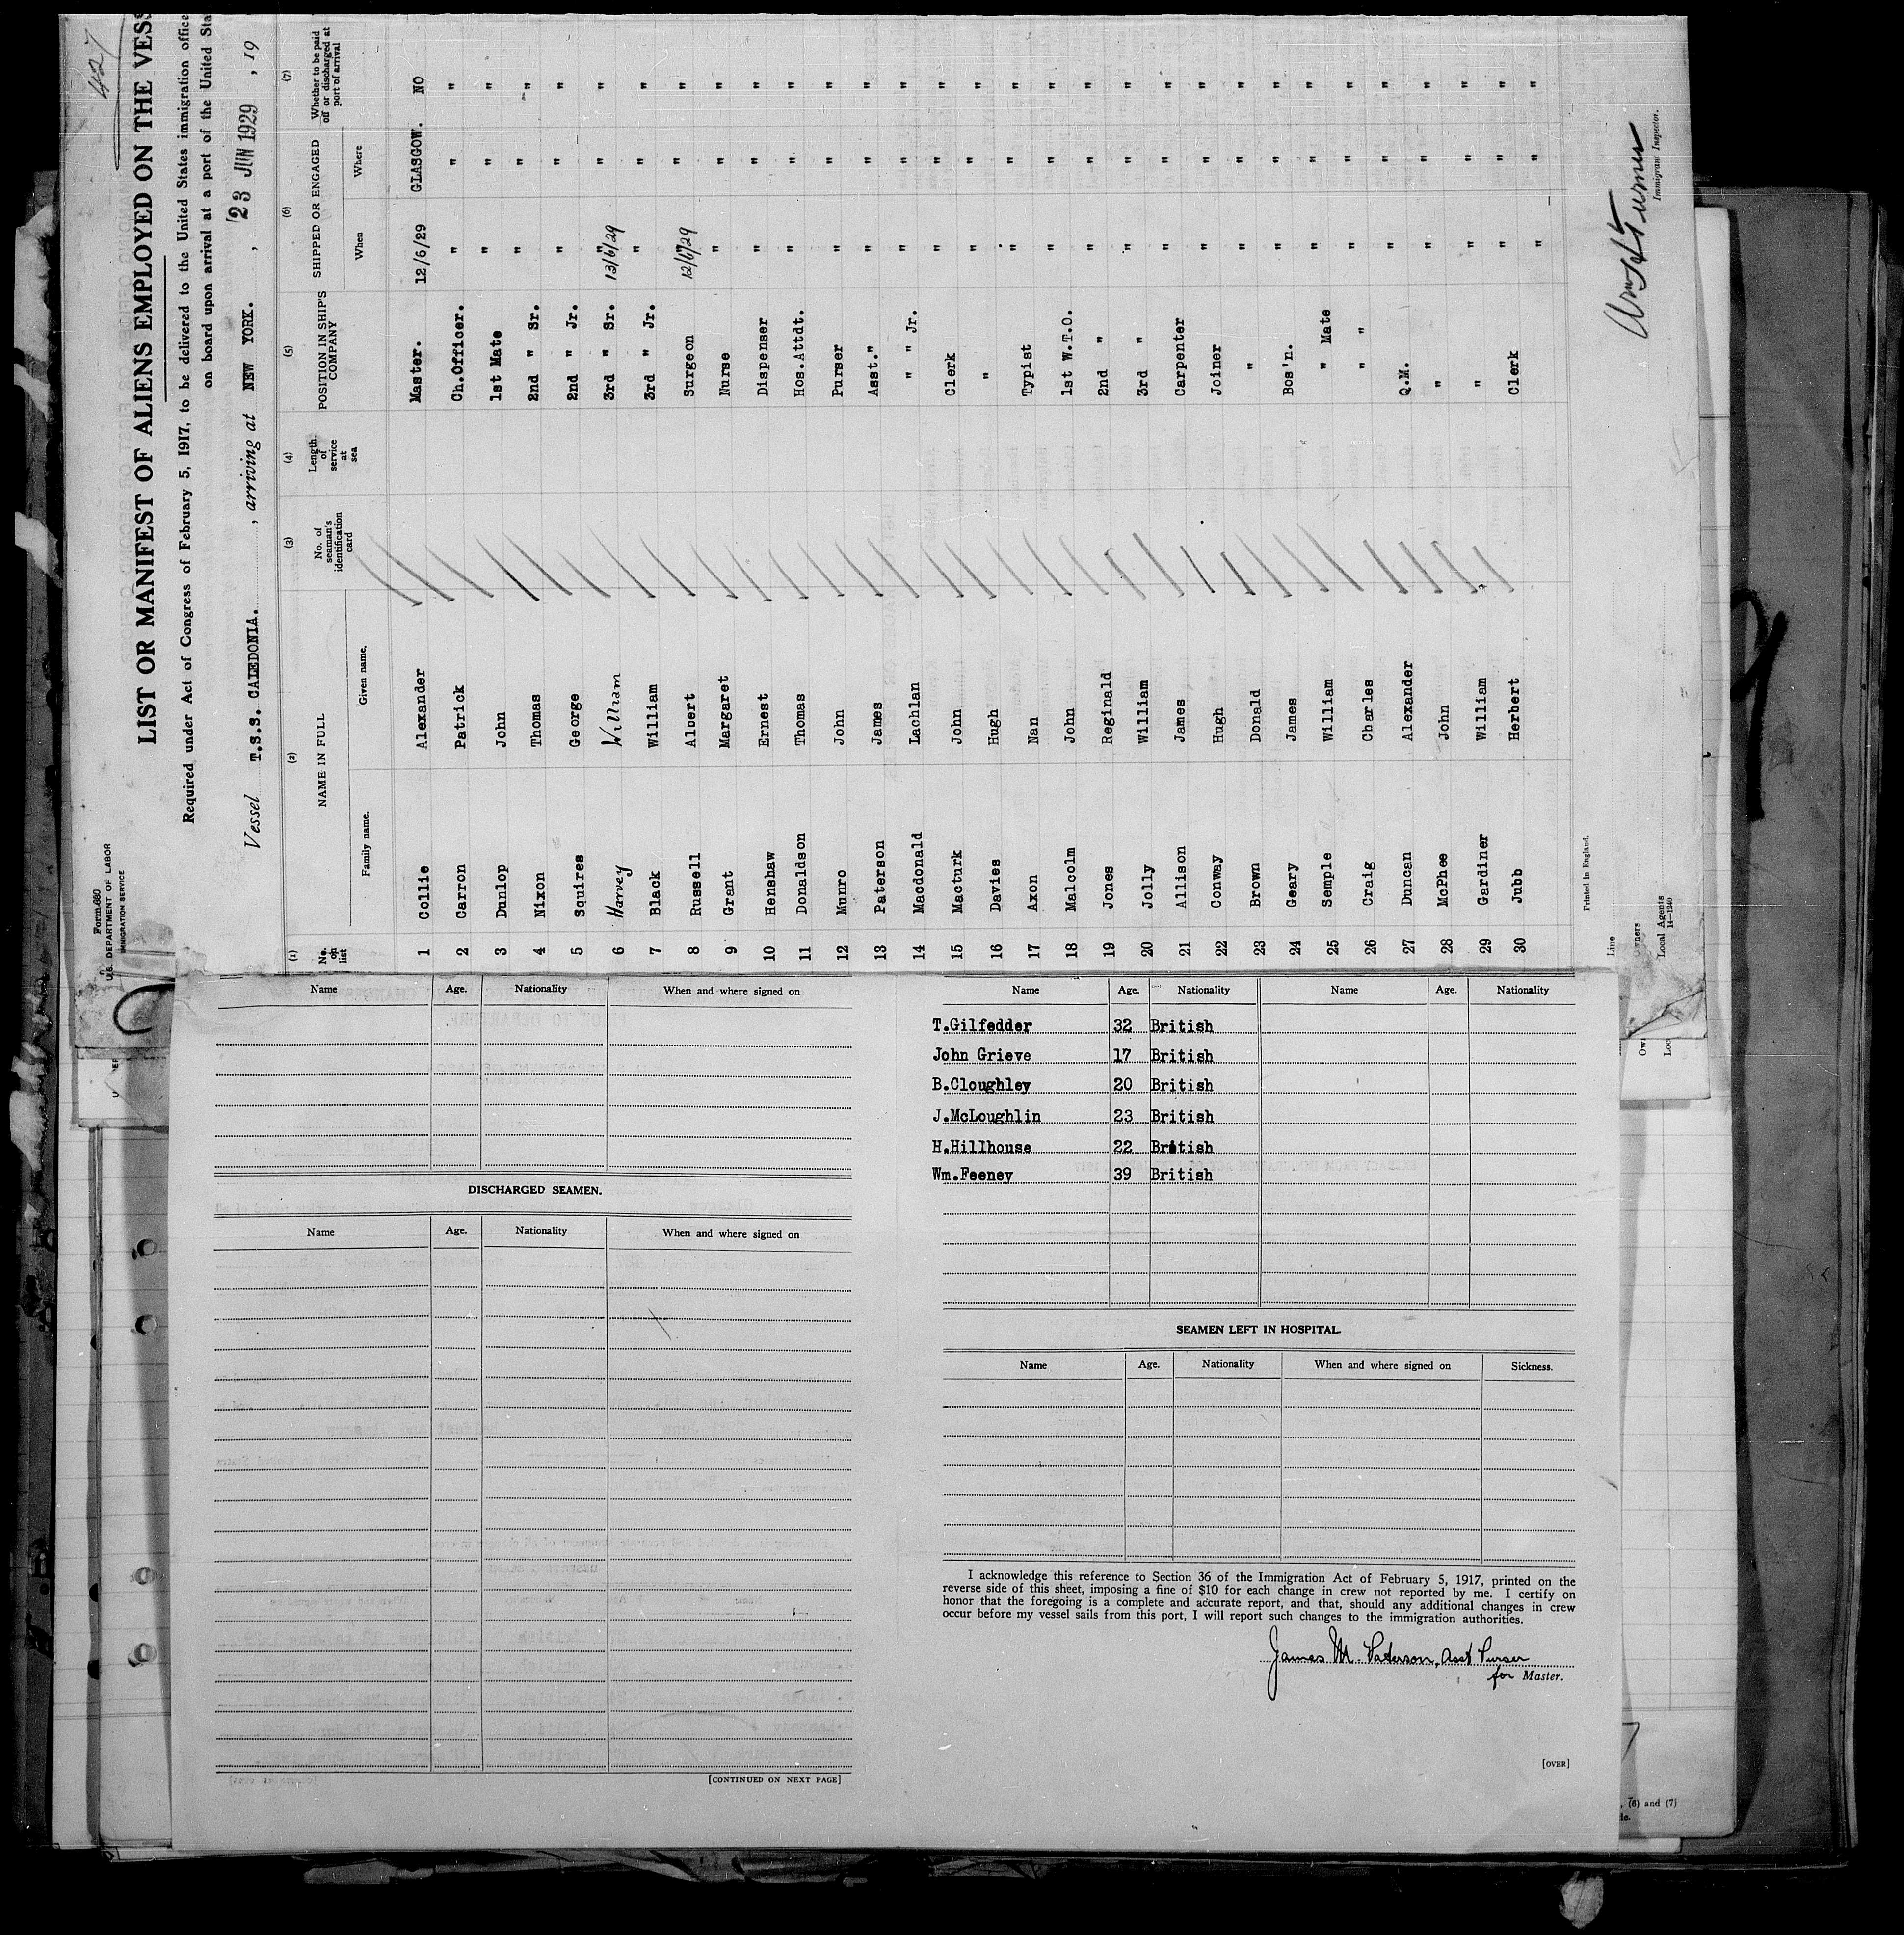 427
Form 680
U.S. DEPARTMENT OF LABOR
IMMIGRATION SERVICE
LIST OR MANIFEST OF ALIENS EMPLOYED ON THE VESS
Required under Act of Congress of February 5, 1917, to be delivered to the United States immigration office
on board upon arrival at a port of the United Sta
Vessel T.S.S. CALEDONIA. , arriving at NEW YORK. , 23 JUN 1929 , 19
(1) (2) (3) (4) (5) (6) (7)
No. on list NAME IN FULL No. of seaman's identification card Length of service at sea POSITION IN SHIP'S COMPANY SHIPPED OR ENGAGED Whether to be paid off or discharged at port of arrival
Family name. Given name. When Where
1 Collie Alexander Master. 12/6/29 GLASGOW. NO
2 Carron Patrick Ch.Officer. " " "
3 Dunlop John 1st Mate " " "
4 Nixon Thomas 2nd " Sr. " " "
5 Squires George 2nd " Jr. " " "
6 Harvey William 3rd " Sr. 13/6/29 " "
7 Black William 3rd " Jr. " " "
8 Russell Albert Surgeon 12/6/29 " "
9 Grant Margaret Nurse " " "
10 Henshaw Ernest Dispenser " " "
11 Donaldson Thomas Hos.Attdt. " " "
12 Munro John Purser " " "
13 Paterson James Asst." " " "
14 Macdonald Lachlan " " Jr. " " "
15 Macturk John Clerk " " "
16 Davies Hugh " " " "
17 Axon Nan Typist " " "
18 Malcolm John 1st W.T.O. " " "
19 Jones Reginald 2nd " " " "
20 Jolly William 3rd " " " "
21 Allison James Carpenter " " "
22 Conway Hugh Joiner " " "
23 Brown Donald " " " "
24 Geary James Bos'n. " " "
25 Semple William " Mate " " "
26 Craig Charles " " " " "
27 Duncan Alexander Q.M. " " "
28 McPhee John " " " "
29 Gardiner William " " " "
30 Jubb Herbert Clerk " " "
Printed in England.
Line
Owners
Local Agents
14—1240
Immigrant Inspector.
Name Age. Nationality When and where signed on
DISCHARGED SEAMEN.
Name Age. Nationality When and where signed on
[CONTINUED ON NEXT PAGE]
Name Age. Nationality Name Age. Nationality
T.Gilfedder 32 British
John Grieve 17 British
B.Cloughley 20 British
J.McLoughlin 23 British
H.Hillhouse 22 British
Wm.Feeney 39 British
SEAMEN LEFT IN HOSPITAL.
Name Age. Nationality When and where signed on Sickness.
I acknowledge this reference to Section 36 of the Immigration Act of February 5, 1917, printed on the
reverse side of this sheet, imposing a fine of $10 for each change in crew not reported by me. I certify on
honor that the foregoing is a complete and accurate report, and that, should any additional changes in crew
occur before my vessel sails from this port, I will report such changes to the immigration authorities.
James M. Paterson, Asst Purser
for Master.
[OVER]
, (6) and (7)